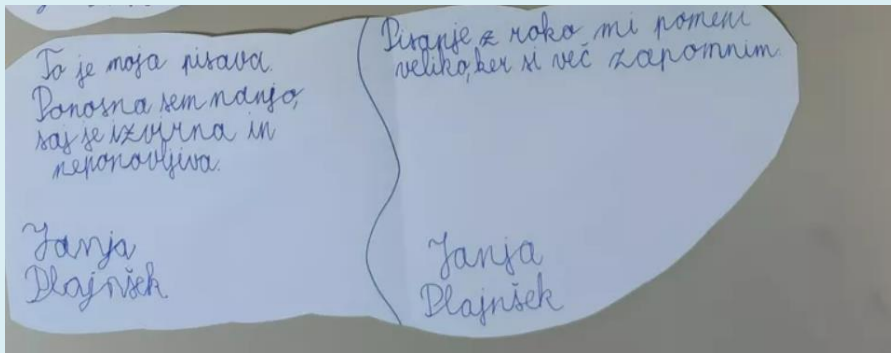 To je moja pisava.
Ponosna sem nanjo,
saj je izvirna in
neponovljiva.
Janja
Plajnšek
Pisanje z roko mi pomeni
veliko, ker si več zapomnim.
Janja
Plajnšek